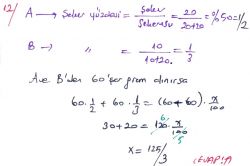 12/ A → Şeker yüzdesi = Şeker / Şekersu = 20 / 20+20 = %50 = 1/2
B → " " = 10 / 10+20 = 1/3
A ve B'den 60'şer gram alınırsa
60 · 1/2 + 60 · 1/3 = (60+60) · x/100
30 + 20 = 120 · x/100
6 5
x = 125/3
(CEVAP:?)